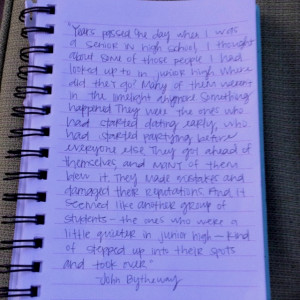 "Years passed the day when I was
a senior in high school, I thought
about some of those people I had
looked up to in junior high. Where
did they go? Many of them weren't
in the limelight anymore. Something
happened. They were the ones who
had started dating early, who
had started partying before
everyone else. They got ahead of
themselves and many of them
blew it. They made mistakes and
damaged their reputations. And it
seemed like another group of
students - the ones who were a
little quieter in junior high - kind
of stepped up into their spots
and took over."
-John Bytheway